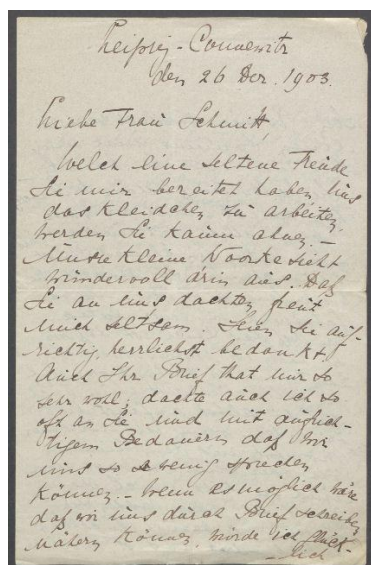 Leipzig-Connewitz
den 26 Dez. 1903.
Liebe Frau Schmitt,
Welch eine seltene Freude
Sie mir bereitet haben, uns
das Kleidchen zu arbeiten,
werden Sie kaum ahnen. –
Unsre kleine sieht
wundervoll drin aus. Daß
Sie an uns dachten, freut
mich seltsam. Seien Sie auf-
richtig, herrlichst bedankt!
Auch Ihr Brief that mir so
sehr wohl; dachte auch ich so
oft an Sie und mit aufrich-
tigem Bedauern daß wir
uns so wenig sprechen
können. – Wenn es möglich wär
daß wir uns durch Brief schreiben
nähern können, würde ich glück-
lich